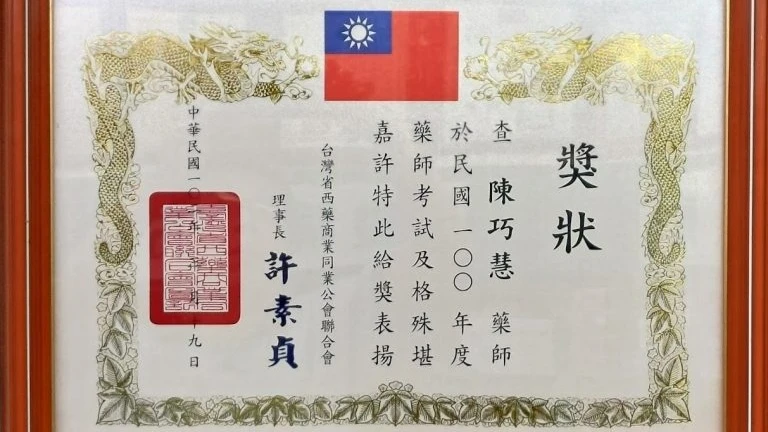 獎狀
查 陳巧慧 藥師
於民國一〇〇年度
藥師考試及格殊堪
嘉許特此給獎表揚
台灣省西藥商業同業公會聯合會
理事長 許素貞
中華民國一〇 年 月 十九日